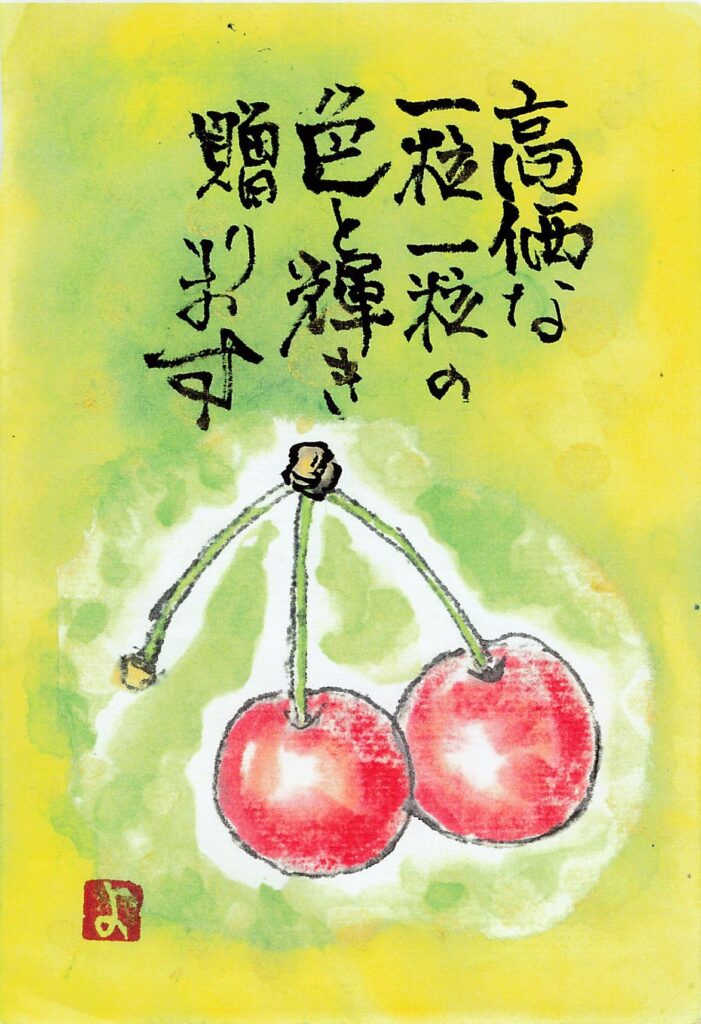 高価な
一粒一粒の
色と輝き
贈ります
よ